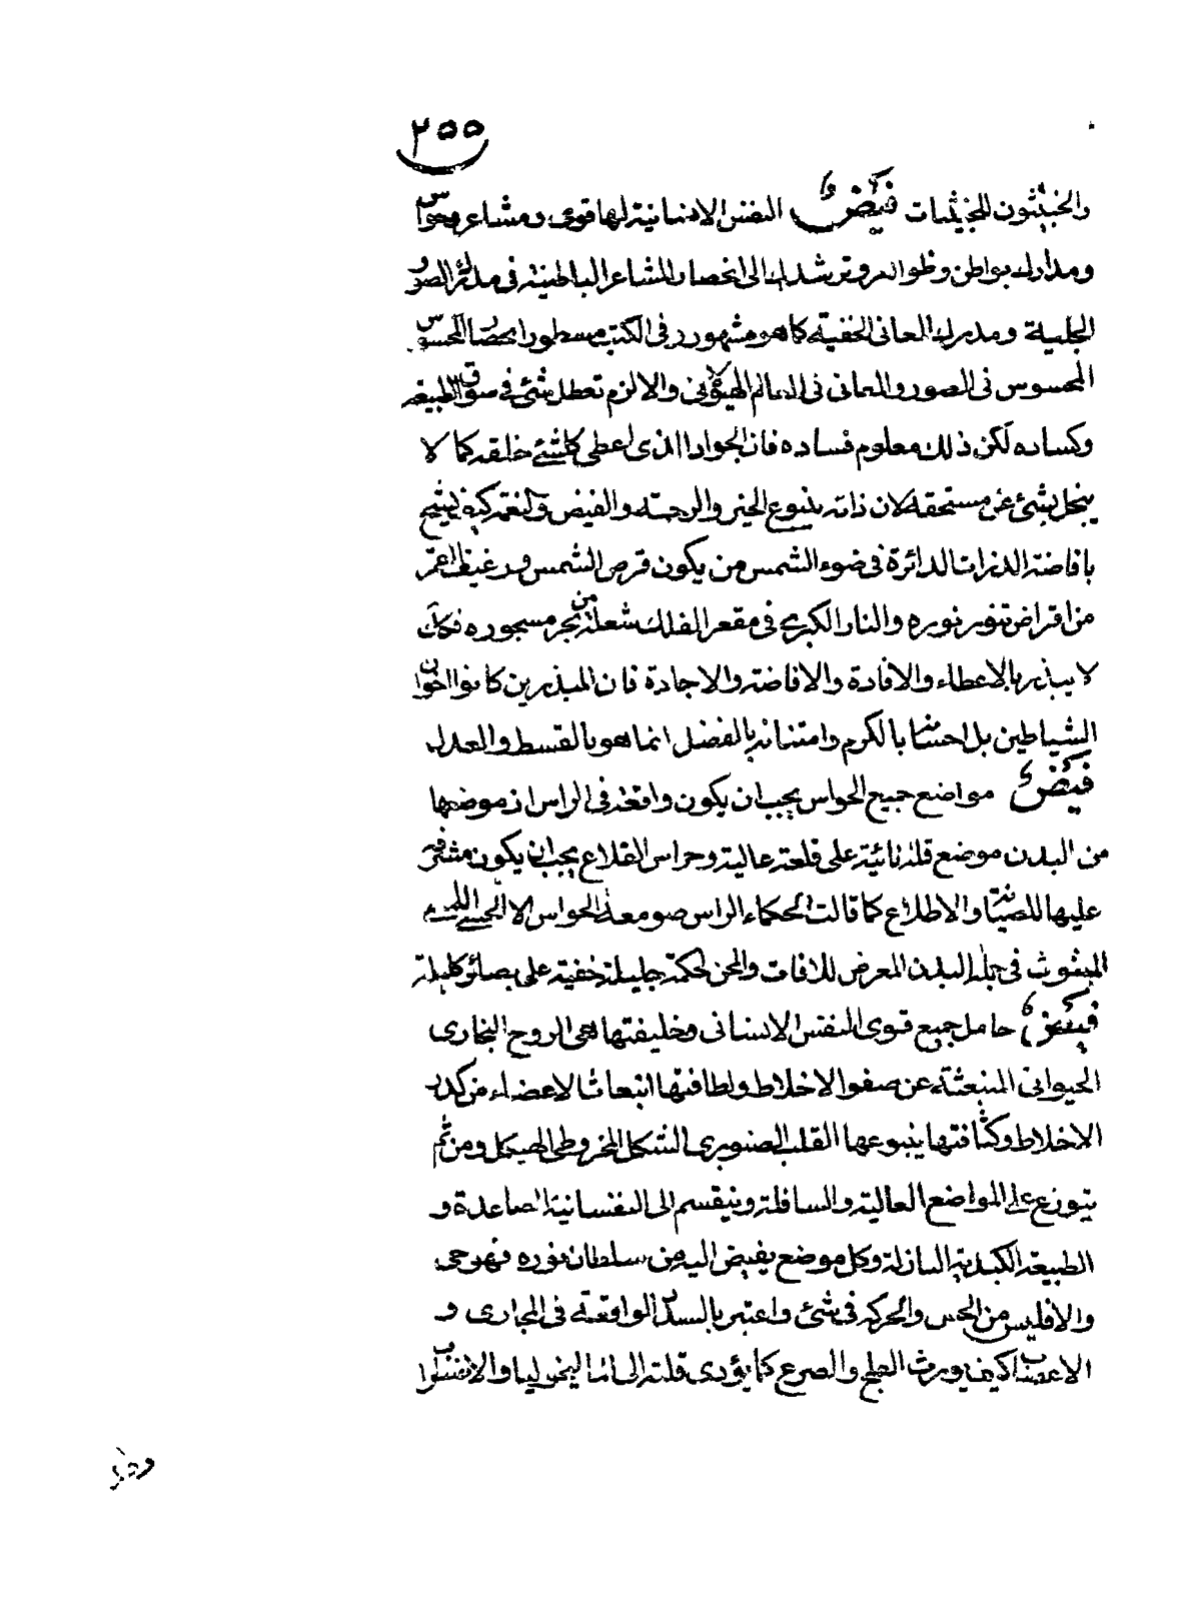 ٢٥٥
والخبيثون للخبيثات فيض النفس الانسانية لها قوى ومشاعر وحواس
ومدارك بواطن وظواهر وترشدك الى انحصار المشاعر الباطنية فى مدارك الصور
الجلية ومدرك المعانى الخفية كما هو مشهور فى الكتب مسطور انحصار المحسوس
المحسوس فى الصور والمعانى فى العالم الهيولانى والا لزم تعطل شئ فى سوق الطبيعة
وكساده لكن ذلك معلوم فساده فان الجواد الذى اعطى كل شئ خلقه كما لا
يبخل بشئ عن مستحقه لان ذاته ينبوع الخير والرحمة والفيض والنعمة كيف يشح
بافاضة الذرات الدائرة فى ضوء الشمس من يكون قرص الشمس
من اقراض تنوير نوره والنار الكبرى فى مقعر الفلك شعلة من بحر مسجوره فكك
لا يبذر بالاعطاء والافادة والافاضة والاجادة فان المبذرين كانوا اخوان
الشياطين بل احسانه بالكرم وامتنانه بالفضل انما هو بالقسط والعدل
فيض مواضع جميع الحواس يجب ان يكون واقعة فى الراس اذ موضعها
من البدن موضع قلة نائية على قلعة عالية وحراس القلاع يجب ان يكون مشرفة
عليها للصيانة والاطلاع كما قالت الحكماء الراس صومعة الحواس الا الحس اللمسى
المبثوث فى جلد البدن المعرض للافات والمحن لحكمة جليلة خفية على بصائر كليلة
فيض حامل جميع قوى النفس الانسانى وخليفتها هى الروح البخارى
الحيوانى المنبعثة عن صفو الاخلاط ولطافتها انبعاث الاعضاء من كدر
الاخلاط وكثافتها ينبوعها القلب الصنوبرى الشكل المخروطى الهيكل ومن ثم
يتوزع على المواضع العالية والسافلة وينقسم الى النفسانية الصاعدة و
الطبيعة الكبدية النازلة وكل موضع يفيض اليه من سلطان نوره فهو حى
والا فليس من الحس والحركة فى شئ واعتبر بالسدد الواقعة فى المجارى و
الاعصاب كيف يورث الفلج والصرع كما يؤدى قلته الى الماليخوليا والانفس لو